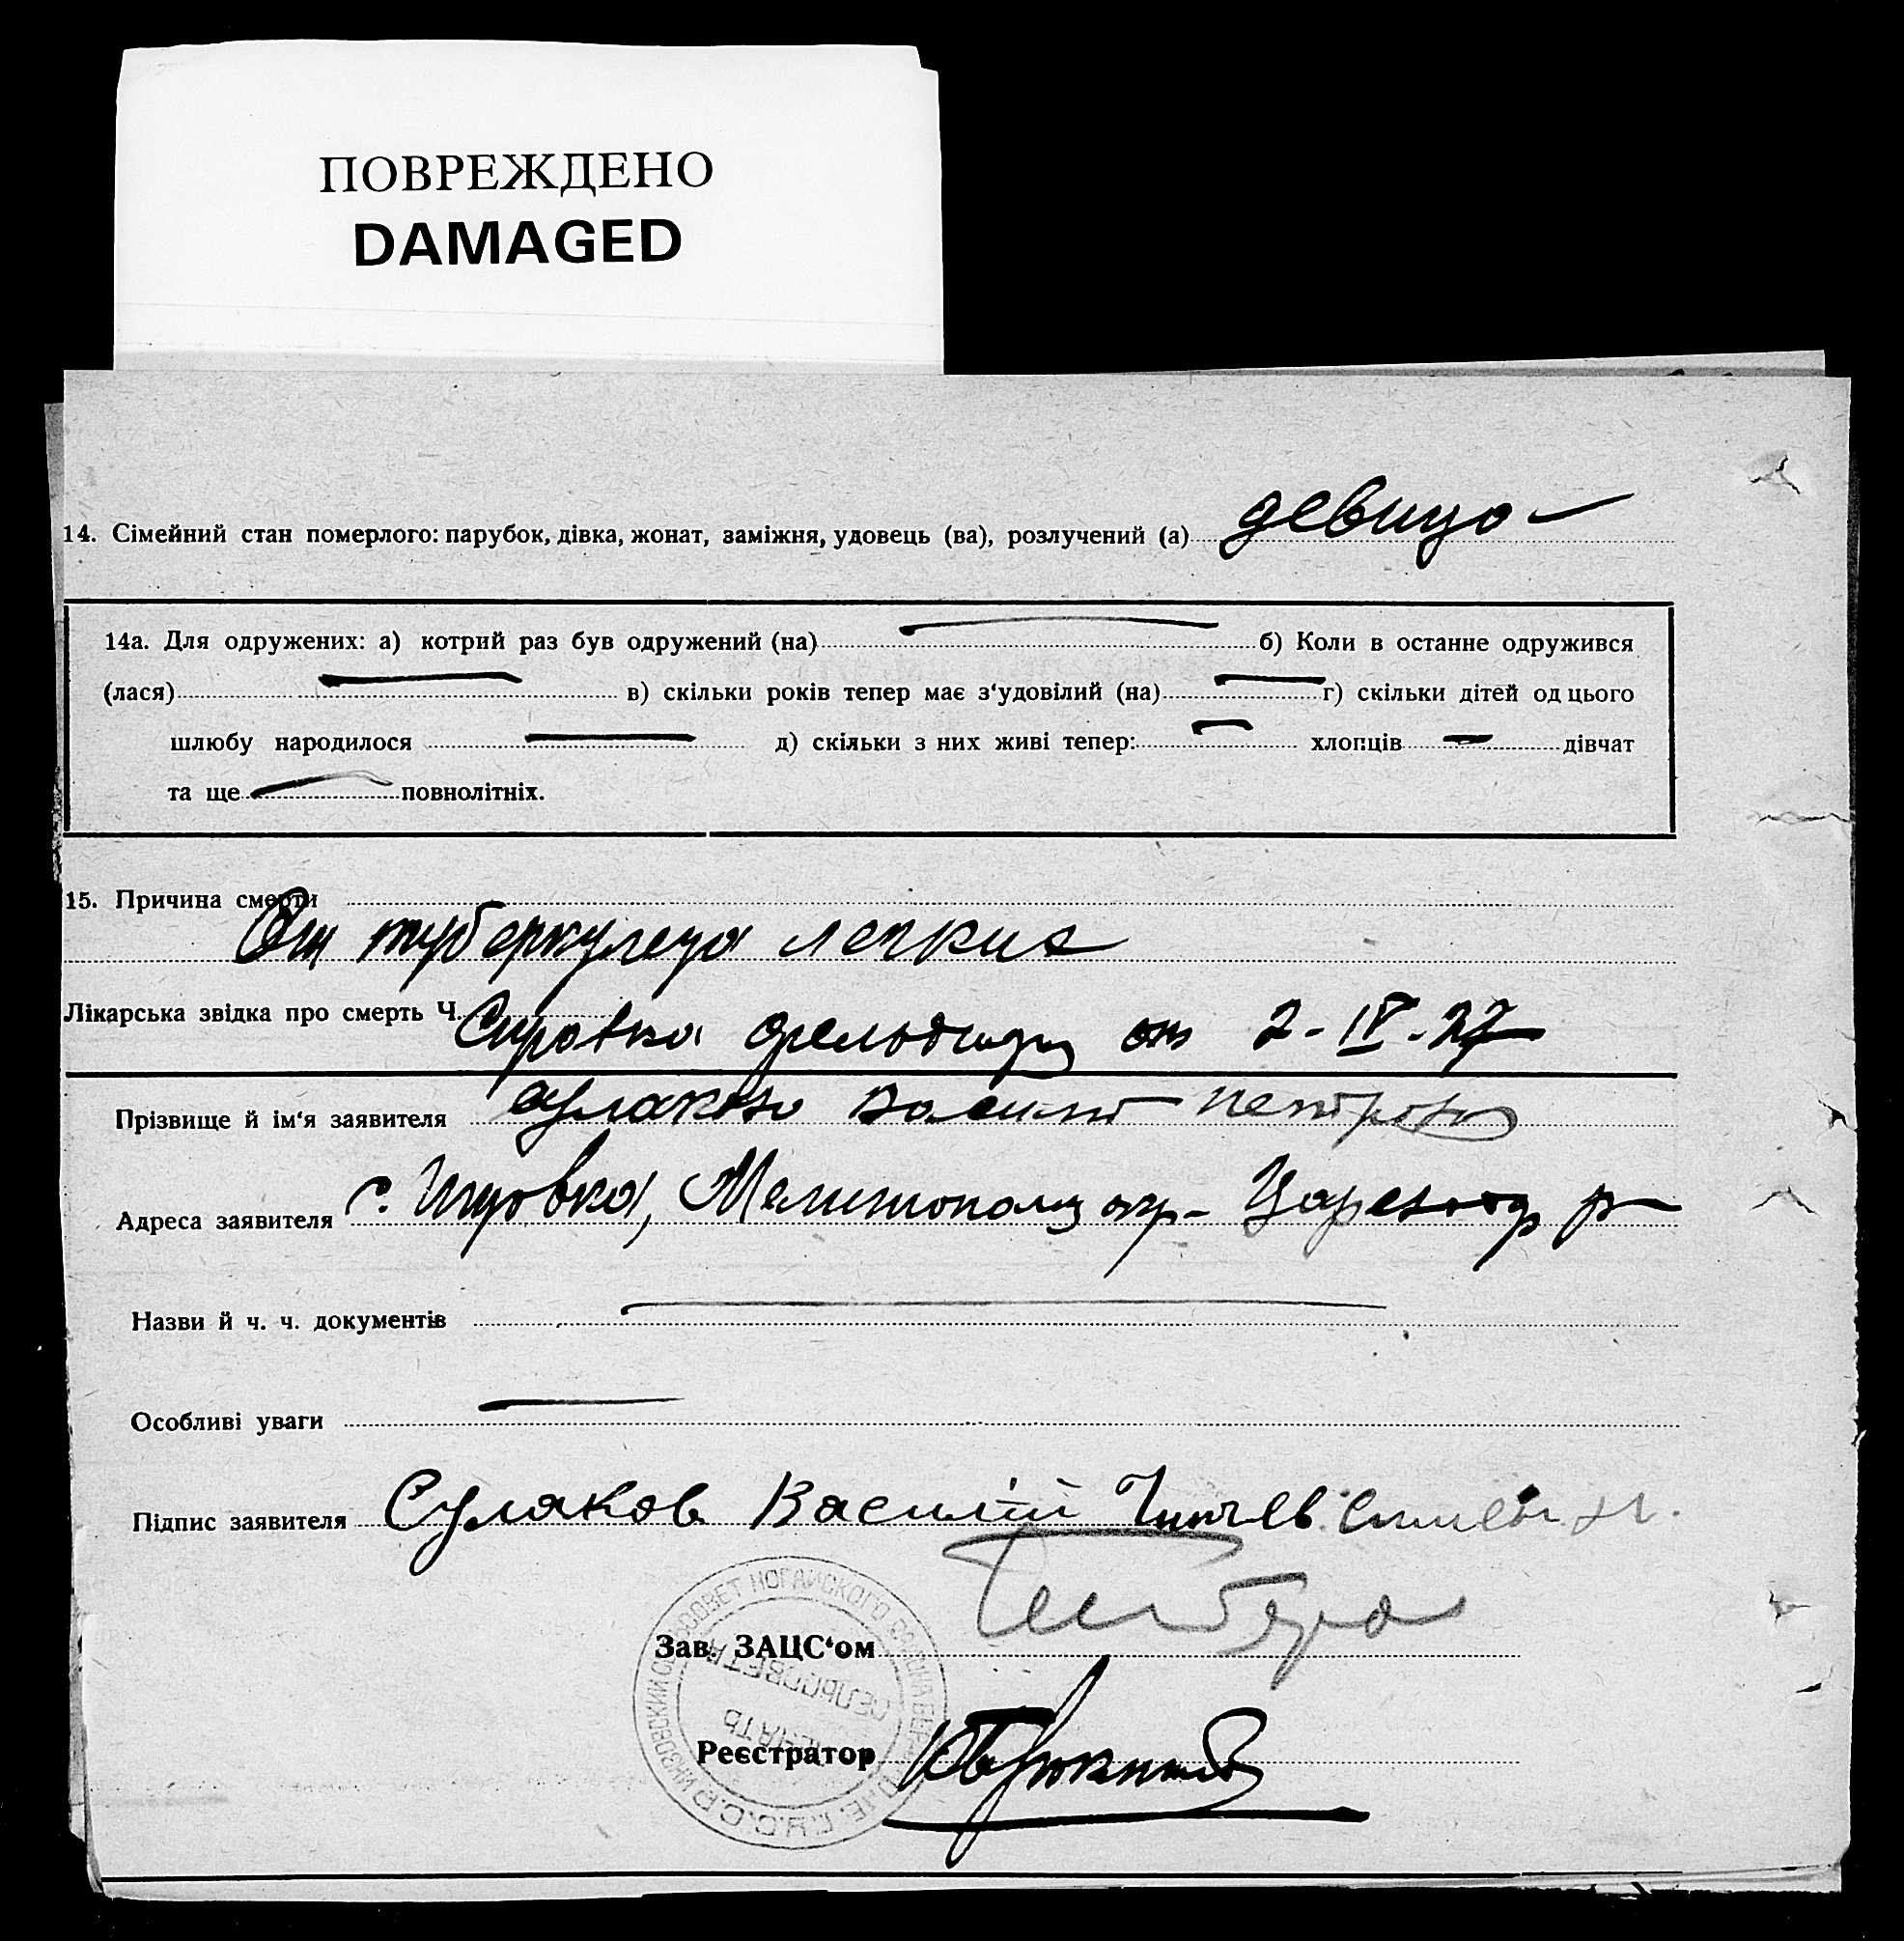 ПОВРЕЖДЕНО
DAMAGED
14. Сімейний стан померлого: парубок, дівка, жонат, заміжня, удовець (ва), розлучений (а) девица
14а. Для одружених: а) котрий раз був одружений (на) б) Коли в останне одружився
(лася) в) скільки років тепер має з‘удовілий (на) г) скільки дітей од цього
шлюбу народилося д) скільки з них живі тепер: хлопців дівчат
та ще повнолітніх.
15. Причина смерти
От туберкулеза легких
Лікарська звідка про смерть Ч. Справка фельдшера от 2-IV-27
Прізвище й ім‘я заявителя Василий Петров
Адреса заявителя с. Мелитополь окр-
Назви й ч. ч. документів
Особливі уваги
Підпис заявителя Сулаков Василій
Зав. ЗАЦС‘ом
Реєстратор